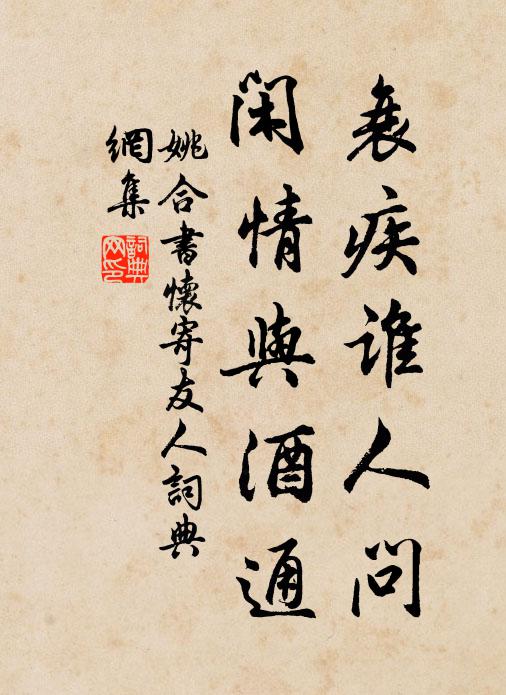 衰疾誰人問
閑情與酒通
姚合書懷寄友人詞典
網集
詞典
网印